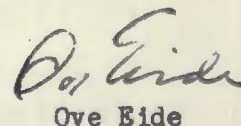 Ove Eide
Ove Eide